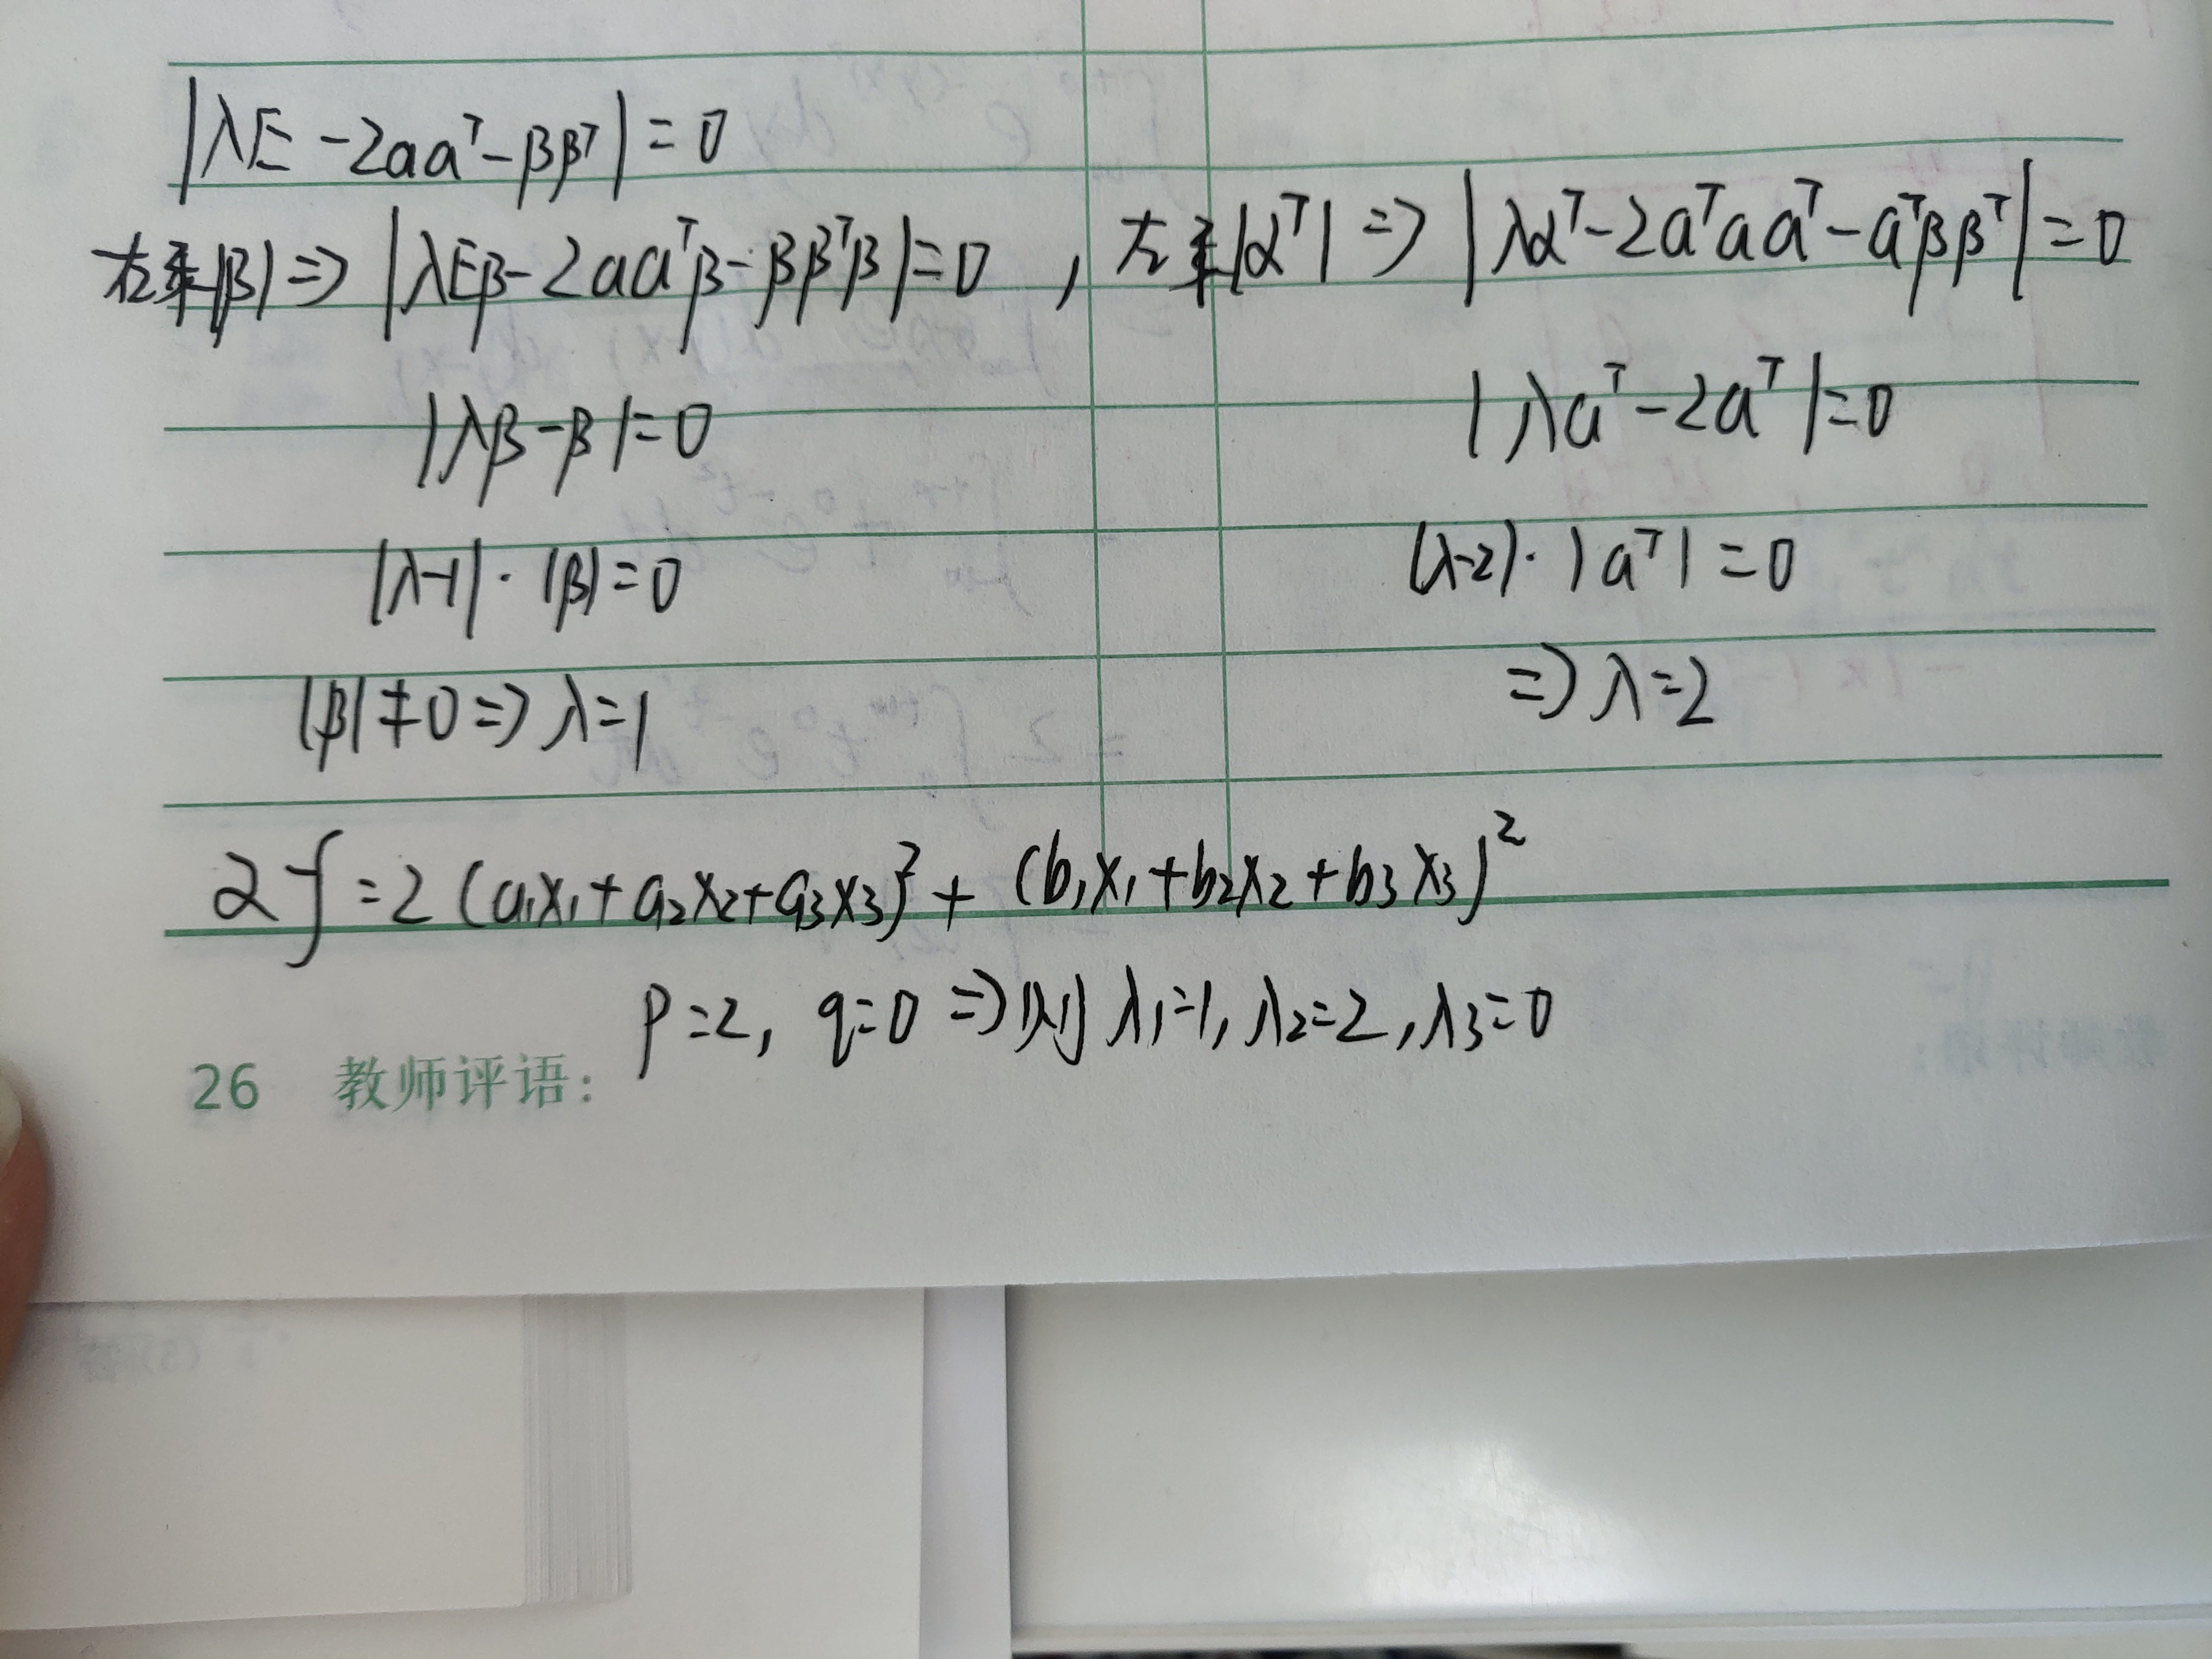 |λE-2aaᵀ-ββᵀ|=0
右乘|β|⇒|λEβ-2aaᵀβ-ββᵀβ|=0 , 左乘|αᵀ|⇒|λαᵀ-2aᵀaaᵀ-aᵀββᵀ|=0
|λβ-β|=0 |λaᵀ-2aᵀ|=0
|λ-1|·|β|=0 (λ-2)·|aᵀ|=0
|β|≠0⇒λ=1 ⇒λ=2
又f=2(a₁x₁+a₂x₂+a₃x₃)²+(b₁x₁+b₂x₂+b₃x₃)²
p=2, q=0⇒则λ₁=1, λ₂=2, λ₃=0
26 教师评语: